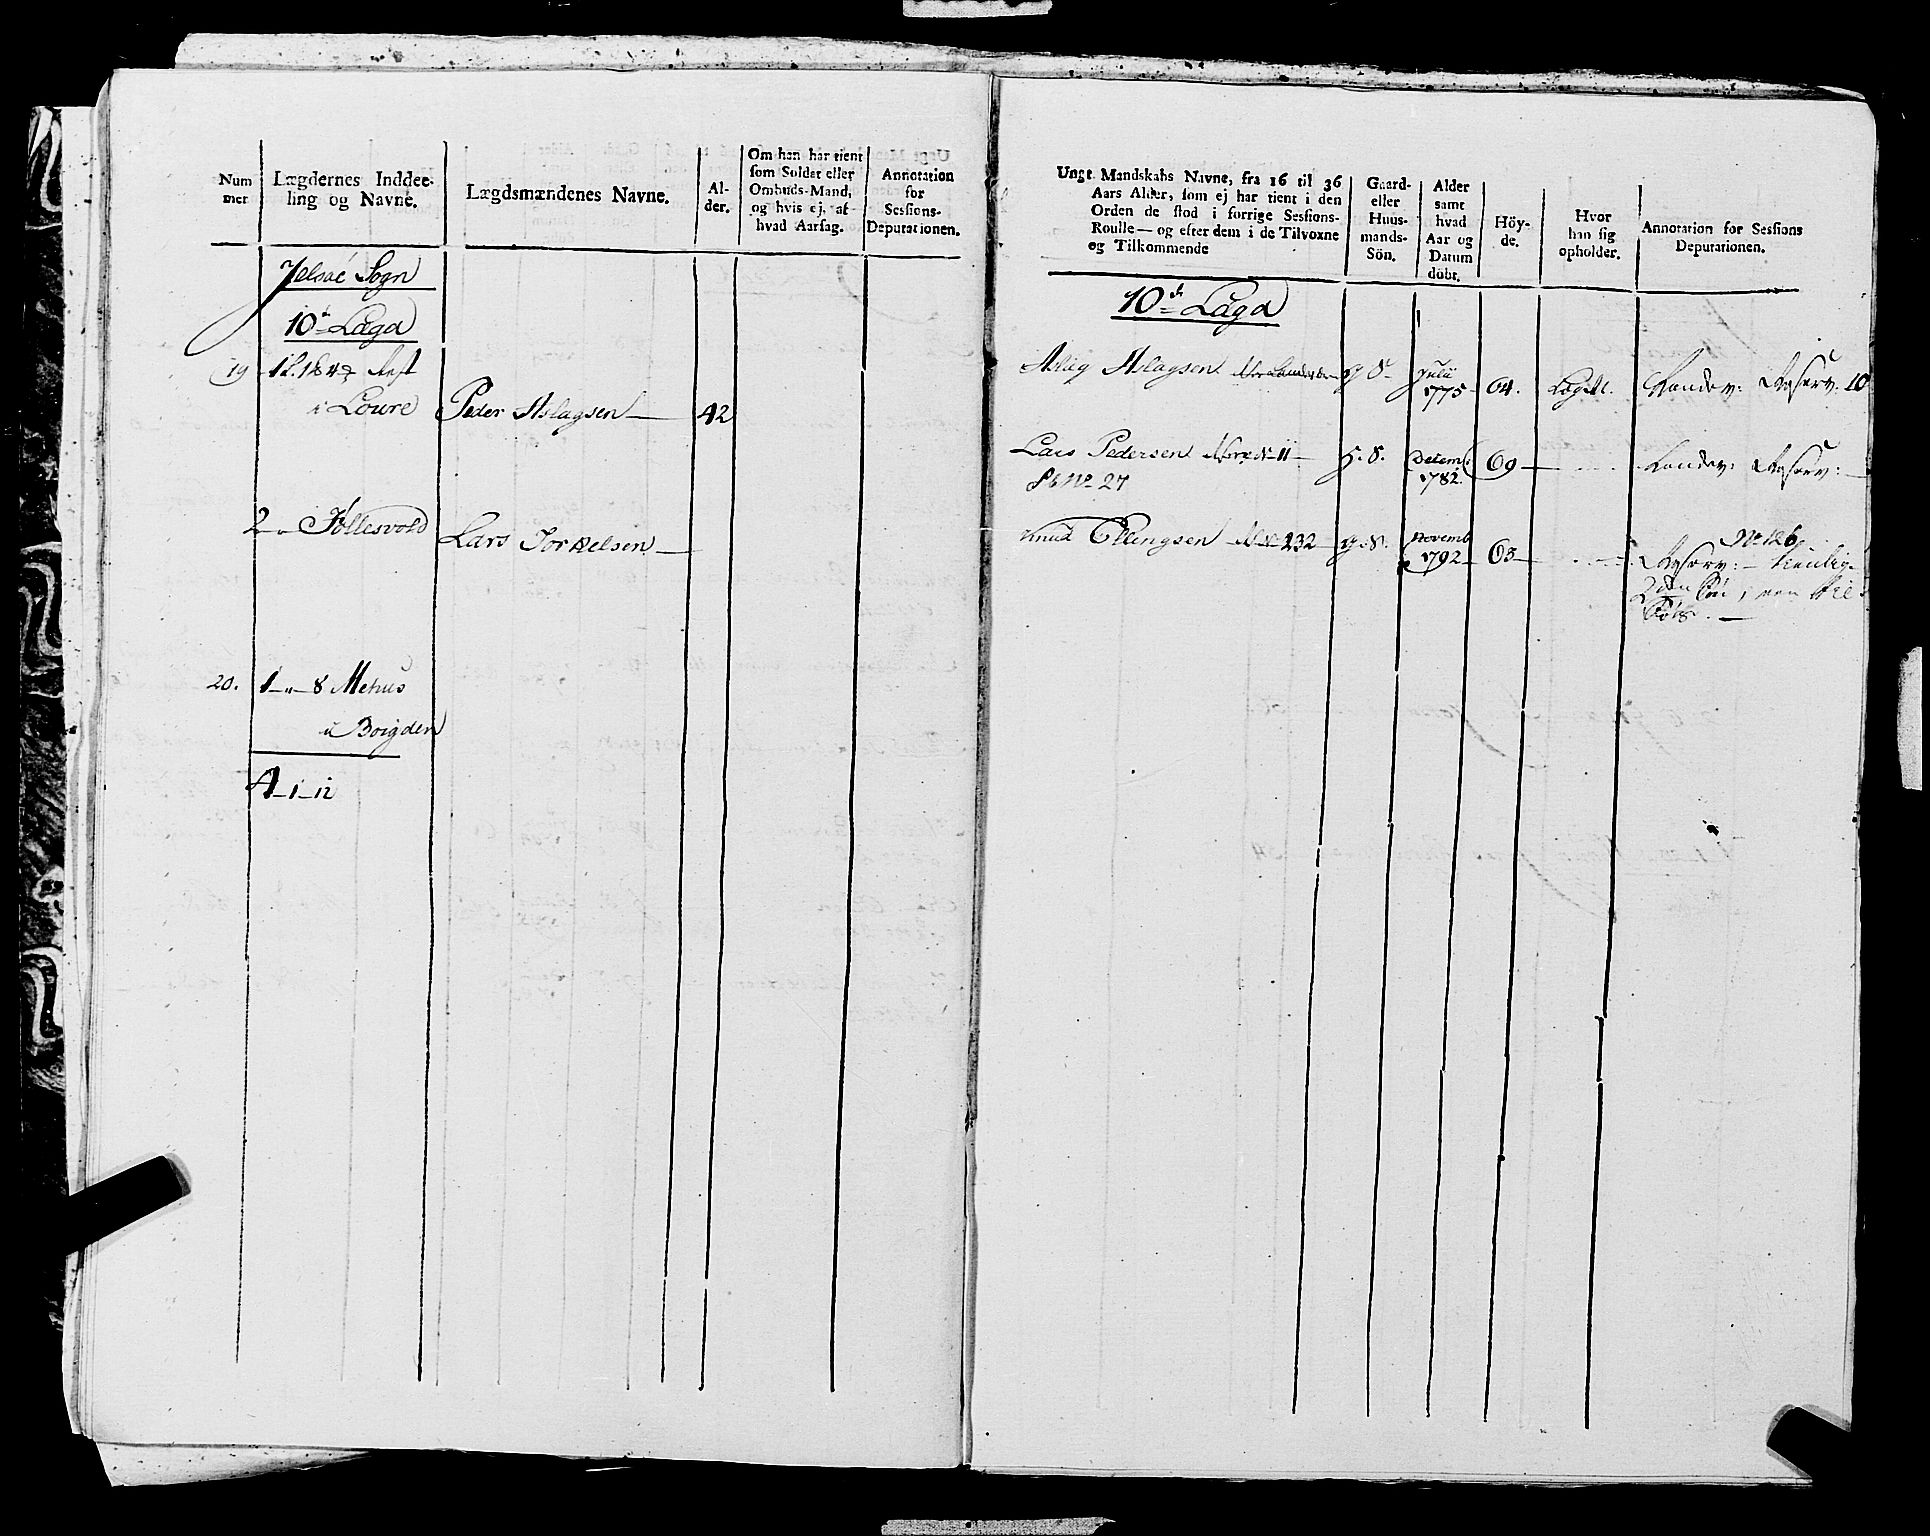 Num
mer.
Lægdernes Inddee-
ling og Navne.
Lægdsmændenes Navne.
Al-
der.
Om han har tient
som Soldat eller
Ombuds-Mand,
og hvis ej, af
hvad Aarsag.
Annotation
for
Sessions-
Deputationen.
Jelsøe Sogn
10de Lægd
19
i Loure
Peder Aslagsen
42
2 " Føllesvold
Lars Torkelsen
20.
1 - " - 8 Mehus
i Boigden
A - 1 - 12
Ungt Mandskabs Navne, fra 16 til 36
Aars Alder, som ej har tient i den
Orden de stod i forrige Sessions-
Roulle — og efter dem i de Tilvoxne
og Tilkommende
Gaard-
eller
Huus-
mands-
Sön.
Alder
samt
hvad
Aar og
Datum
döbt.
Höy-
de.
Hvor
han sig
opholder.
Annotation for Sessions
Deputationen.
10de Lægd
Aslag Aslagsen
g. S.
Julii
1775
64.
Lægdet.
Landev: Reserv: 10
Lars Pedersen No 11
No 27
g. S.
Decemb:
1782.
69
Landev: Reserv:
Knud Ellingsen No 232
g. S.
Novemb
1792
63
No 126
Reserv:
2den